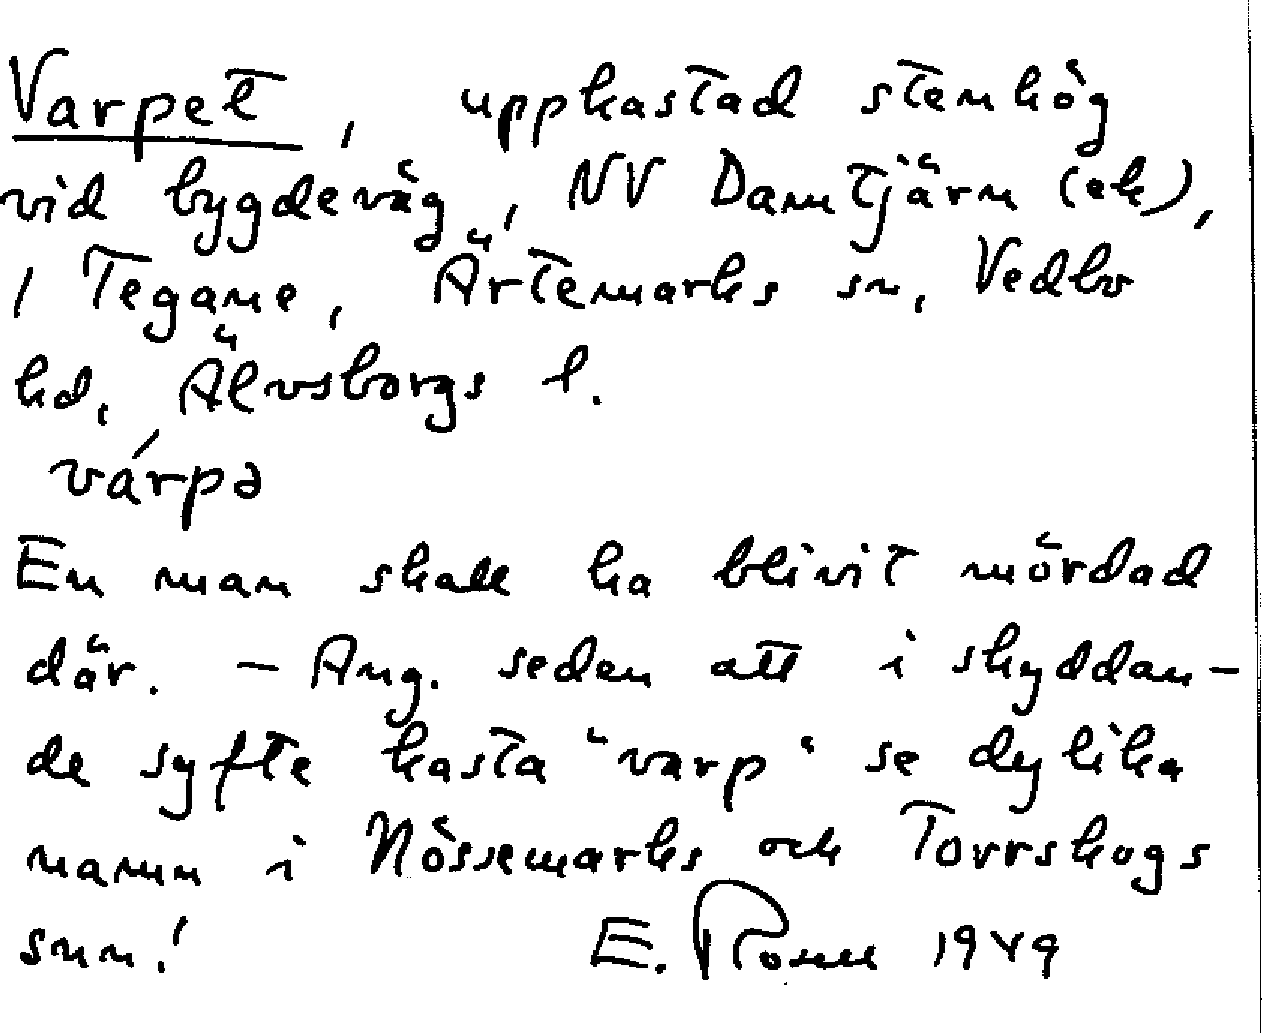 Varpet, uppkastad stenhög
vid bygdeväg, NV Damtjärn (ek),
/ Tegane, Ärtemarks sn, Vedbo
hd, Älvsborgs l.
várpə
En man skall ha blivit mördad
där. – Ang. seden att i skyddan-
de syfte kasta "varp" se dylika
namn i Nössemarks och Torrskogs
snn! E. 1949